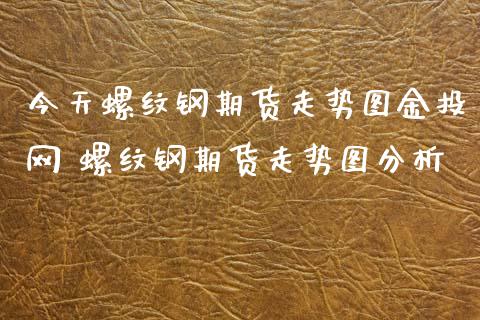 今天螺纹钢期货走势图金投
网 螺纹钢期货走势图分析